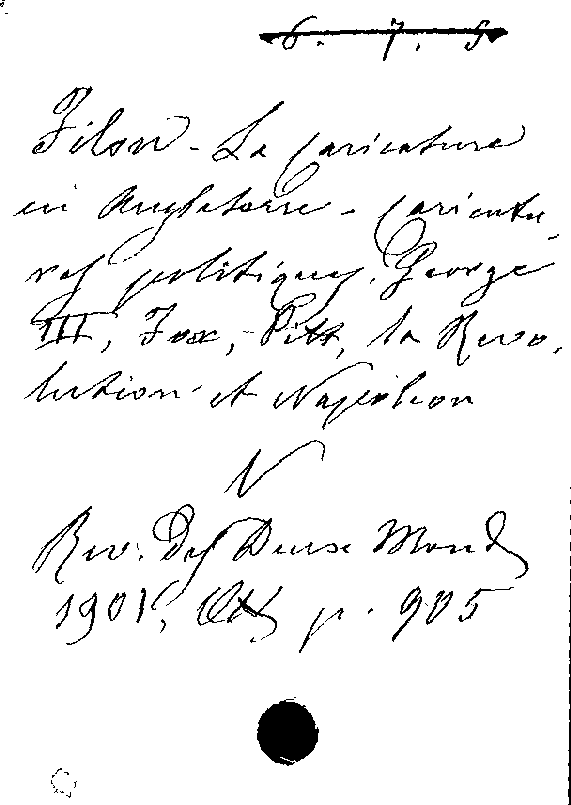 6. 7. 5
Filon - La caricature
en Angleterre - caricatu-
res politiques. George
III, Fox, Pitt, la Revo-
lution et Napoleon
V
Rev. Des Deux Monds
1901, Oct p. 905